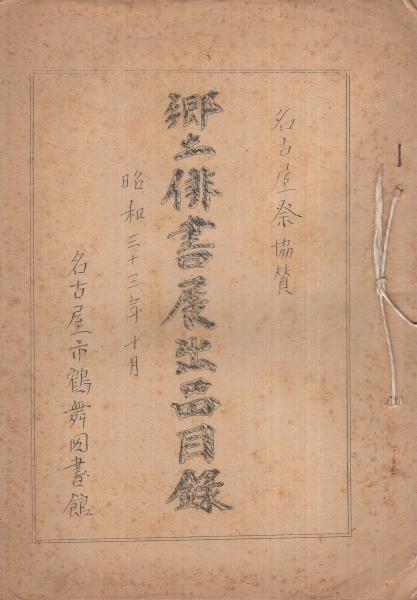 名古屋祭協賛
郷土俳書展出品目録
昭和三十三年十月
名古屋市鶴舞図書館